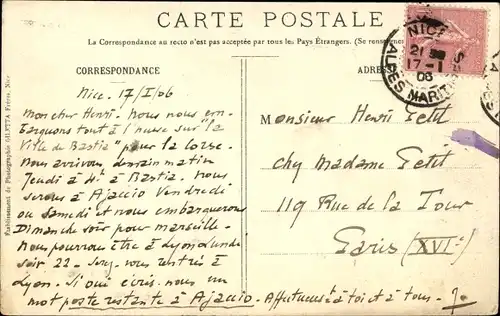 CARTE POSTALE
La Correspondance au recto n'est pas acceptée par tous les Pays Étrangers. (Se renseigner
CORRESPONDANCE
ADRES
NICE
21
17-1
06
ALPES MARIT
Nice. 17/I/06
Mon cher Henri. Nous nous em-
barquons tout à l'heure sur "la
Ville de Bastia" pour la Corse.
Nous arrivons demain matin
Jeudi à 4h à Bastia. Nous
serons à Ajaccio Vendredi
ou samedi et nous embarquerons
Dimanche soir pour Marseille.
Nous pourrons être à Lyon lundi
soir 22 - Soyez vous rentrés à
Lyon. Si oui écris nous un
mot poste restante à Ajaccio. Affectueust à toi et à tous.
Monsieur Henri Petit
chez Madame Petit
119 Rue de la Tour
Paris (XVIe)
Établissement de Photographie GILETTA Frères, Nice